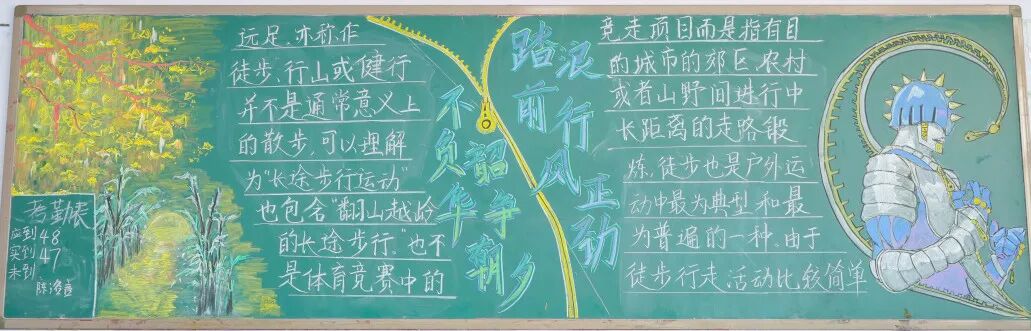 远足,亦称作
徒步、行山或健行
并不是通常意义上
的散步,可以理解
为“长途步行运动”
也包含“翻山越岭
的长途步行。”也不
是体育竞赛中的
不负韶华争朝夕
踏浪前行风正动
竞走项目而是指有目
的城市的郊区、农村
或者山野间进行中
长距离的走路锻
炼,徒步也是户外运
动中最为典型和最
为普遍的一种。由于
徒步行走活动比较简单
考勤表
应到48
实到47
未到: